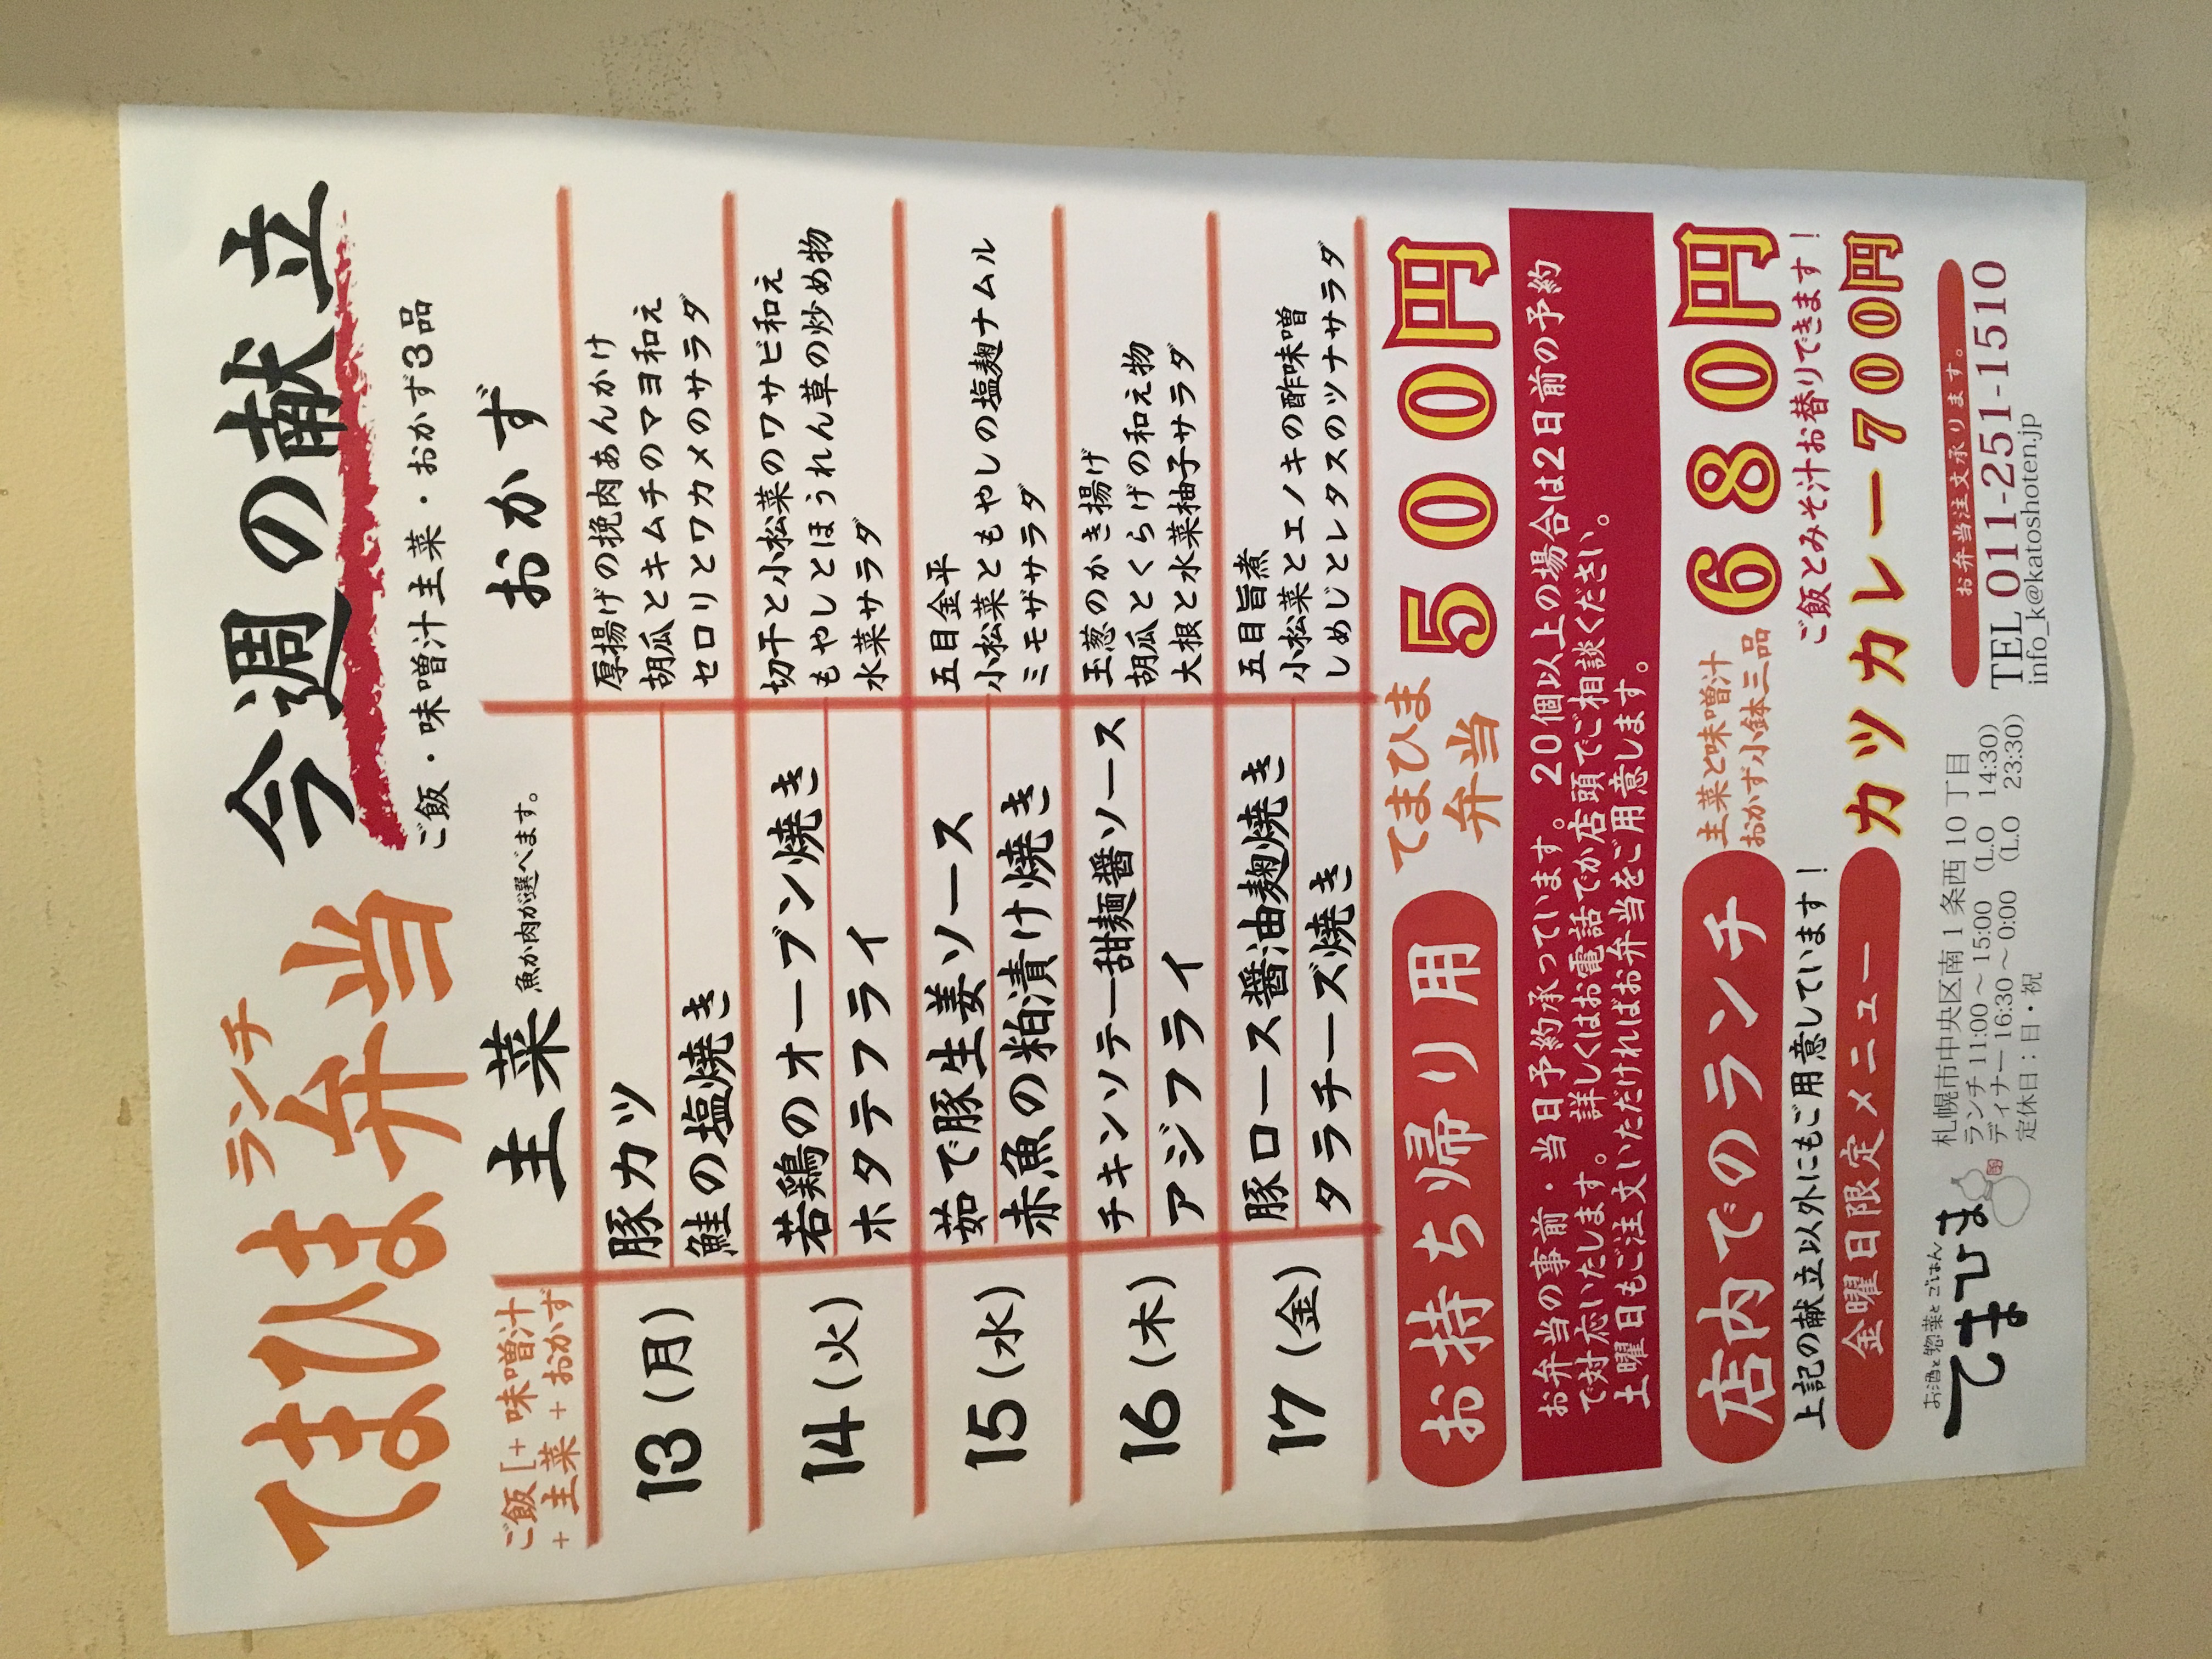 ランチ
てまひま弁当
今週の献立
ご飯・味噌汁主菜・おかず3品
ご飯[+味噌汁
+主菜+おかず
主菜 魚か肉が選べます。
おかず
13(月)
豚カツ
鮭の塩焼き
厚揚げの挽肉あんかけ
胡瓜とキムチのマヨ和え
セロリとワカメのサラダ
14(火)
若鶏のオーブン焼き
ホタテフライ
切干と小松菜のワサビ和え
もやしとほうれん草の炒め物
水菜サラダ
15(水)
茹で豚生姜ソース
赤魚の粕漬け焼き
五目金平
小松菜ともやしの塩麹ナムル
ミモザサラダ
16(木)
チキンソテー甜麺醤ソース
アジフライ
玉葱のかき揚げ
胡瓜とくらげの和え物
大根と水菜柚子サラダ
17(金)
豚ロース醤油麹焼き
タラチーズ焼き
五目旨煮
小松菜とエノキの酢味噌
しめじとレタスのツナサラダ
お持ち帰り用
てまひま
弁当
500円
お弁当の事前・当日予約承っています。20個以上の場合は2日前の予約
で対応いたします。詳しくはお電話でか店頭でご相談ください。
土曜日もご注文いただければお弁当をご用意します。
店内でのランチ
主菜と味噌汁
おかず小鉢三品
680円
上記の献立以外にもご用意しています!
ご飯とみそ汁お替りできます!
金曜日限定メニュー
カツカレー700円
お酒と惣菜とごはん
てまひま
札幌市中央区南1条西10丁目
ランチ 11:00～15:00 (L.O 14:30)
ディナー 16:30～0:00 (L.O 23:30)
定休日:日・祝
お弁当注文承ります。
TEL 011-251-1510
info_k@katoshoten.jp